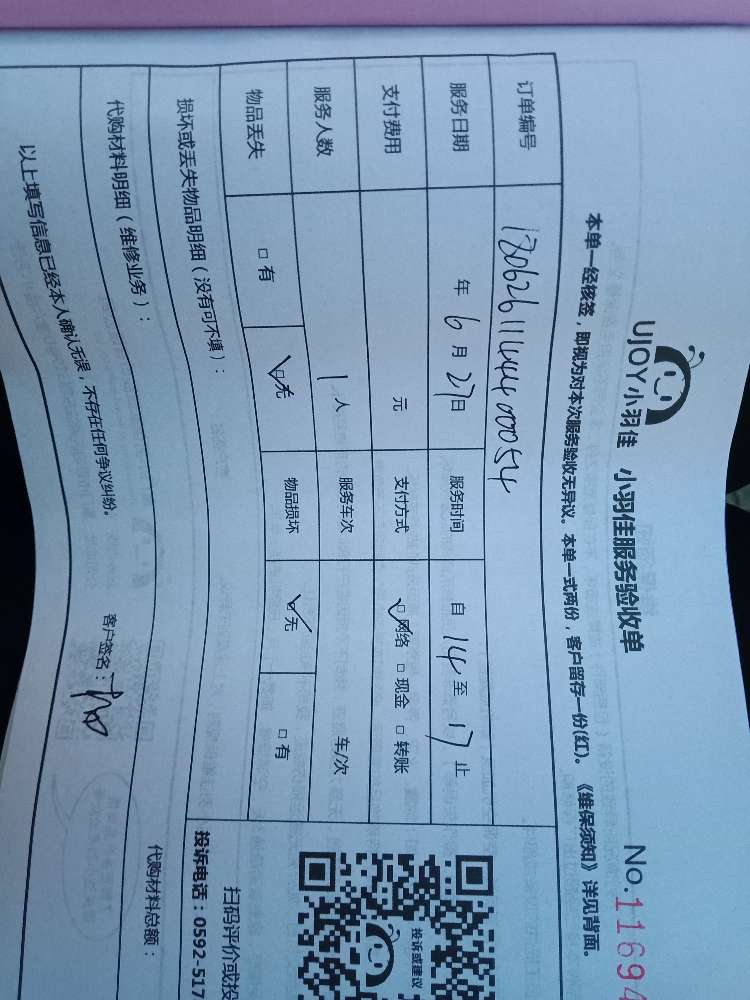 UJOY小羽佳 小羽佳服务验收单 No.11694
本单一经核签，即视为对本次服务验收无异议。本单一式两份，客户留存一份(红)。《维保须知》详见背面。
订单编号 180626111444000054
服务日期 年 6 月 27 日 服务时间 自 14 至 17 止
支付费用 元 支付方式 ☑网络 □现金 □转账
服务人数 1 人 服务车次 车/次
物品丢失 □有 ☑无 物品损坏 ☑无 □有
投诉或建议
扫码评价或投
投诉电话：0592-517
损坏或丢失物品明细（没有可不填）：
代购材料明细（维修业务）： 代购材料总额：
以上填写信息已经本人确认无误，不存在任何争议纠纷。 客户签名：